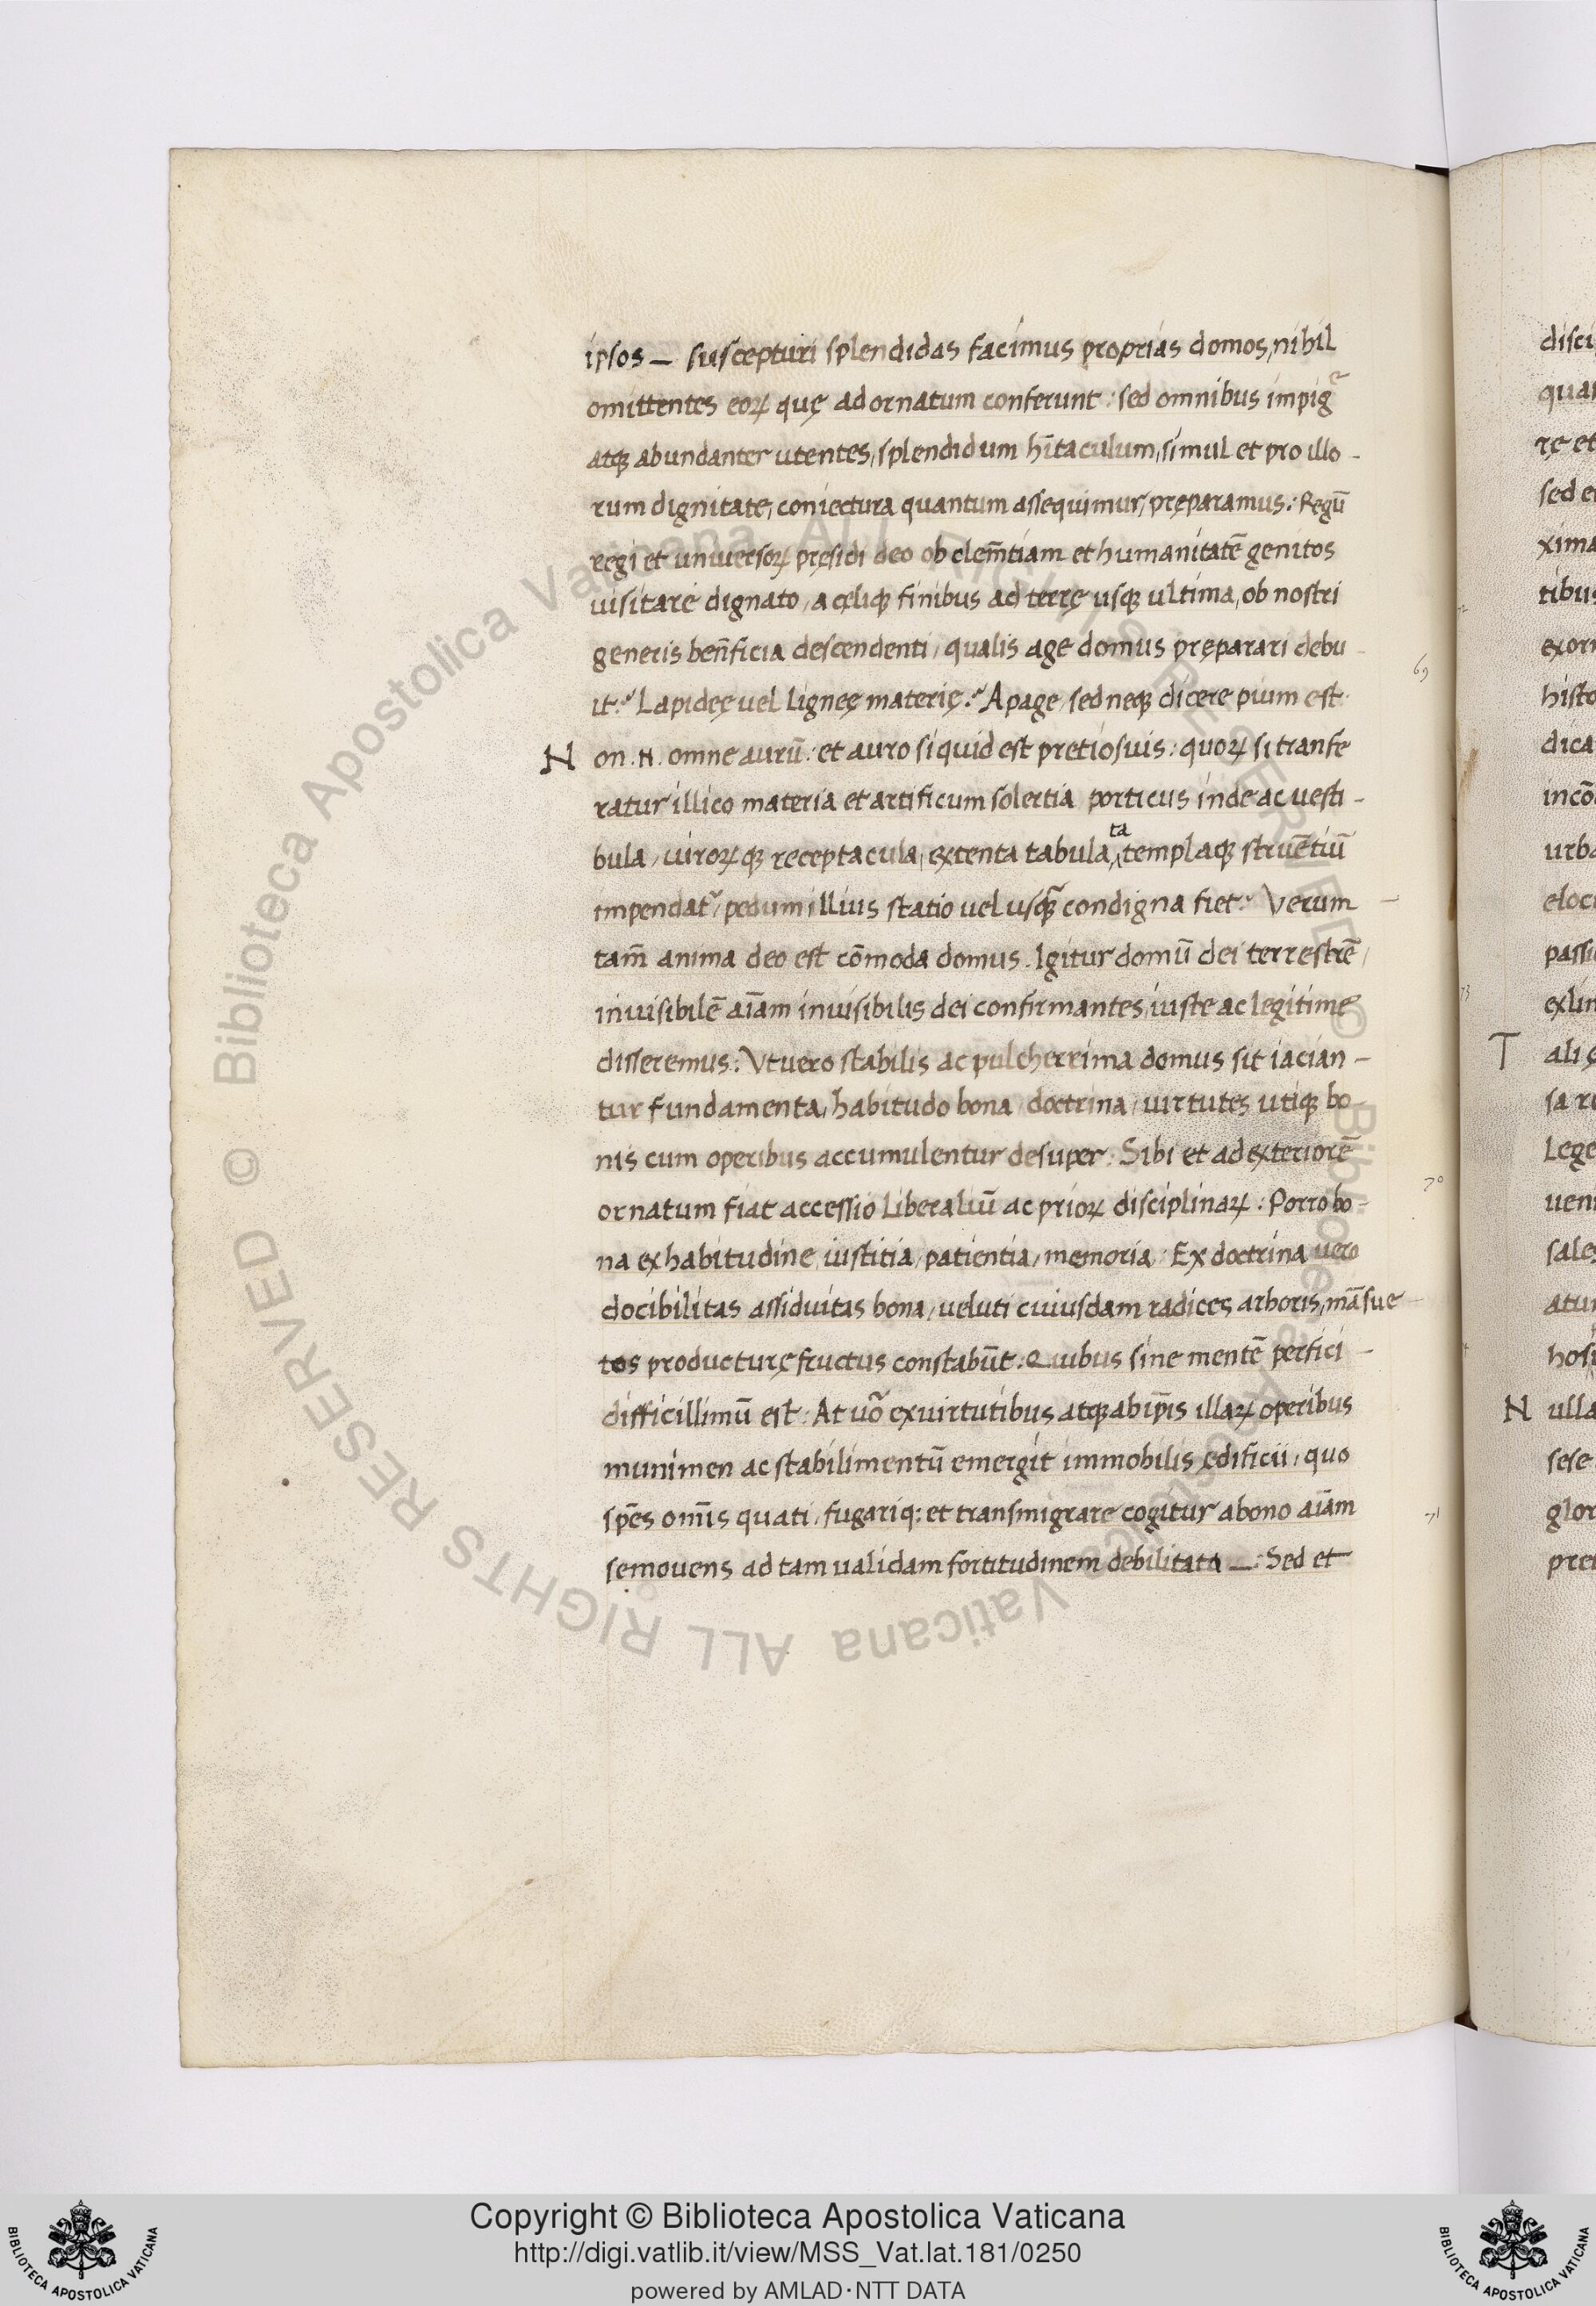 ipsos — suscepturi splendidas facimus proprias domos, nihil
omittentes eoꝝ quę ad ornatum conferunt : sed omnibus impigͤ
atqꝫ abundanter utentes, splendidum hi̅taculum, simul et pro illo -
rum dignitate, coniectura quantum assequimur, pręparamus : Regū
regi et universoꝝ pręsidi deo ob clem̅tiam et humanitatē genitos
uisitare dignato, a cęliqꝫ finibus ad terrę usqꝫ ultima, ob nostri
generis ben̅ficia descendenti, qualis age domus pręparari debu -
it : Lapideę vel ligneę materię : Apage, sed neqꝫ dicere pium est.
N on . N . omne aurū : et auro si quid est pretiosuis : quoꝝ si transfe
ratur illico materia et artificum solertia porticus inde ac vesti -
bula, uiroꝝqꝫ receptacula, extenta tabula^ta, templaqꝫ struētiū
impendat᷑, pedum illius statio vel usqꝫ̃ condigna fiet : Verum -
tam̅ anima deo est cōmoda domus . Igitur domū dei terrestrē,
inuisibilē ai̅am inuisibilis dei confirmantes, iuste ac legitime
disseremus : Ut uero stabilis ac pulcherrima domus sit iacian -
tur fundamenta, habitudo bona, doctrina, uirtutes utiqꝫ bo -
nis cum operibus accumulentur desuper : Sibi et ad exteriorē
ornatum fiat accessio liberaliū ac prioꝝ disciplinaꝝ : Porro bo -
na ex habitudine, iustitia, patientia, memoria : Ex doctrina uero
docibilitas assiduitas bona, veluti cuiusdam radices arboris, māsue -
tos producturę fructus constabūt : Quibus sine mentē perfici -
difficillimū est : At uo᷑ ex uirtutibus atqꝫ ab ip̅is illaꝝ operibus
munimen ac stabilimentū emergit immobilis ędificii, quo
spe̅s om̅is quati, fugariq; et transmigrare cogitur a bono ai̅am
semouens ad tam ualidam fortitudinem debilitata — : Sed et
69
70
71
72
73
disci
quar
rę et
sed e
xima
tibus
exorn
histo
dica
incō
urba
eloc
passi
exlin
T alię
sa r
Lege
ueni
sales
atur
hosp
N ulla
sese
glor
pret
© Biblioteca Apostolica Vaticana ALL RIGHTS RESERVED © Biblioteca Apostolica Vaticana ALL RIGHTS RESERVED
BIBLIOTECA APOSTOLICA VATICANA
Copyright © Biblioteca Apostolica Vaticana
http://digi.vatlib.it/view/MSS_Vat.lat.181/0250
powered by AMLAD·NTT DATA
BIBLIOTECA APOSTOLICA VATICANA